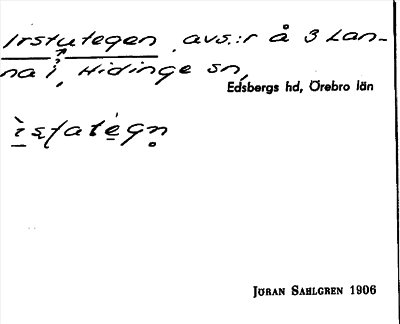 Irstutegen avs.:r å 3 Lan-
na i, Hidinge sn,
Edsbergs hd, Örebro län
ìstatégn̥
JÖRAN SAHLGREN 1906